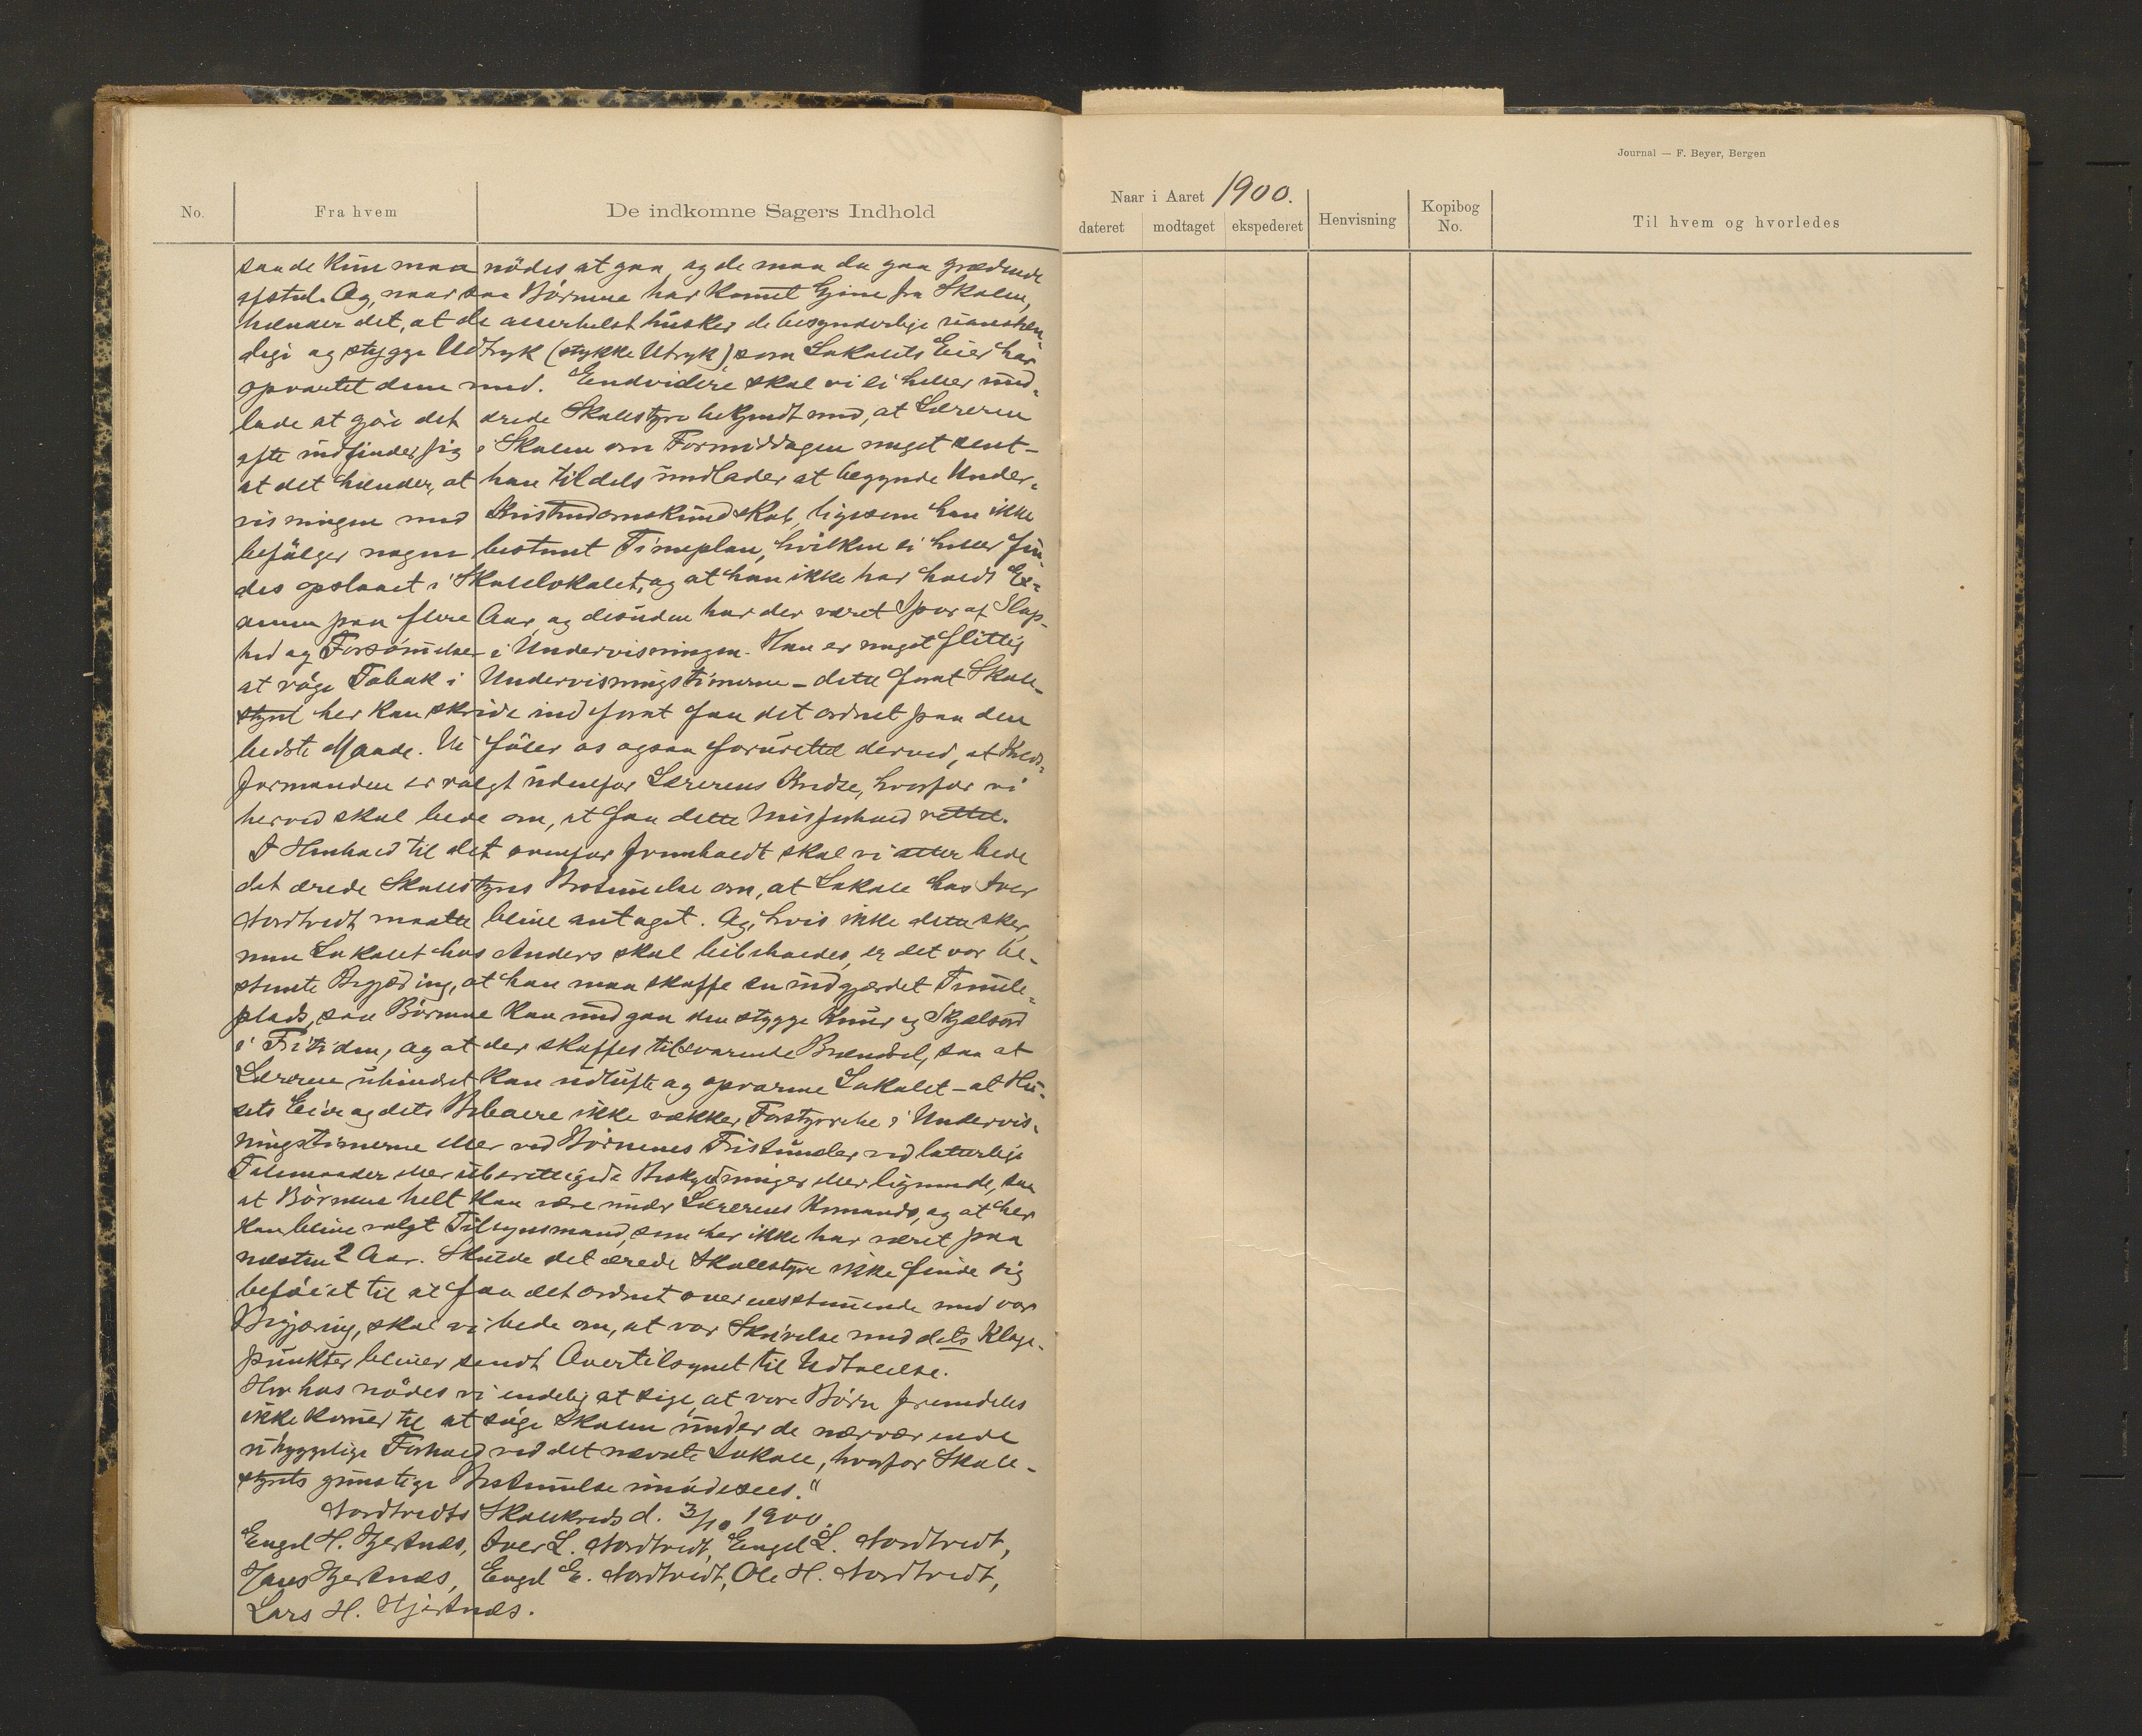 Journal — F. Beyer, Bergen
No.
Fra hvem
De indkomne Sagers Indhold
Naar i Aaret 1900.
dateret
modtaget
ekspederet
Henvisning
Kopibog
No.
Til hvem og hvorledes
saade kun maa nödes at gaa, og de maa da gaa grædende
afsted. Og, naar saa Börnene har kommet hjem fra Skolen,
hænder det, at de allerhelst husker de besynderlige uanstæn-
dige og stygge Udtryk (stykke Utryk) som Lokalets Eier har
opvartet dem med. Endvidere skal vi ei heller und-
lade at gjöre det ærede Skolestyre bekjendt med, at Læreren
ofte indfinder sig i Skolen om Formiddagen meget sent –
at det hænder, at han tildels undlader at begynde Under-
visningen med Kristendomskundskab, ligesom han ikke
befölger nogen bestemt Timeplan, hvilken ei heller fin-
des opslaaet i Skolelokalet, og at han ikke har holdt Ex-
amen paa flere Aar, og desuden har der været Spor af Slap-
hed og Forsömmelse i Undervisningen. Han er meget flittig
at röge Tobak i Undervisningstimerne – dette forat Skole-
styret her kan skride ind forat faa det ordnet paa den
bedste Maade. Vi föler os ogsaa forurettet derved, at Kreds-
formanden er valgt udenfor Lærerens Kredse, hvorfor vi
herved skal bede om, at faa dette Misforhold rettet.
I Henhold til det ovenfor fremholdt skal vi atter bede
det ærede Skolestyres Bestemmelse om, at Lokale hos Iver
Nordtvedt maatte blive antaget. Og, hvis ikke dette sker,
men Lokalet hos Anders skal beibeholdes, er det vor be-
stemte Begjæring, at han maa skaffe en indgjerdet Tumle-
plads, saa Börnene kan undgaa den stygge Knur og Skjælsord
i Fritiden, og at der skaffes tilsvarende Brændsel, saa at
Læreren uhindret kan udlufte og opvarme Lokalet – at Hu-
sets Eier og dets Beboere ikke vækker Forstyrrelse i Undervis-
ningstimerne eller ved Börnenes Fristunder ved latterlige
Talemaader eller uberettigede Beskyldninger eller lignende, saa
at Börnene helt kan være under Lærerens Kommando, og at her
kan blive valgt Tilsynsmand, som her ikke har været paa
næsten 2 Aar. Skulde det ærede Skolestyre ikke finde sig
beföiet til at faa det ordnet overensstemmende med vor
Begjæring, skal vi bede om, at vor Skrivelse med dets Klage-
punkter bliver sendt Overtilsynet til Udtalelse.
Herhos nödes vi endelig at sige, at vore Börn fremdeles
ikke kommer til at söge Skolen under de nærværende
uhyggelige Forhold ved det nævnte Lokale, hvorfor Skole-
styrets gunstige Bestemmelse imödesees."
Nordtvedts Skolekreds d. 3/10 1900.
Engel H. Hjertnes, Iver L. Nordtvedt, Engel L. Nordtvedt,
Hans Hjertnes, Engel E. Nordtvedt, Ole H. Nordtvedt,
Lars H. Hjertnes.